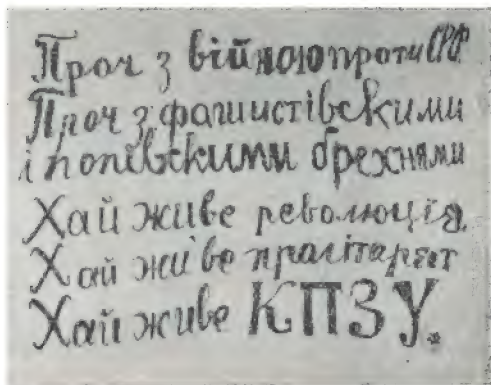 Проч з війною проти СРСР
Проч з фашистівскими
і попівскими брехнями
Хай живе революція.
Хай живе пралітаріят
Хай живе КПЗУ.